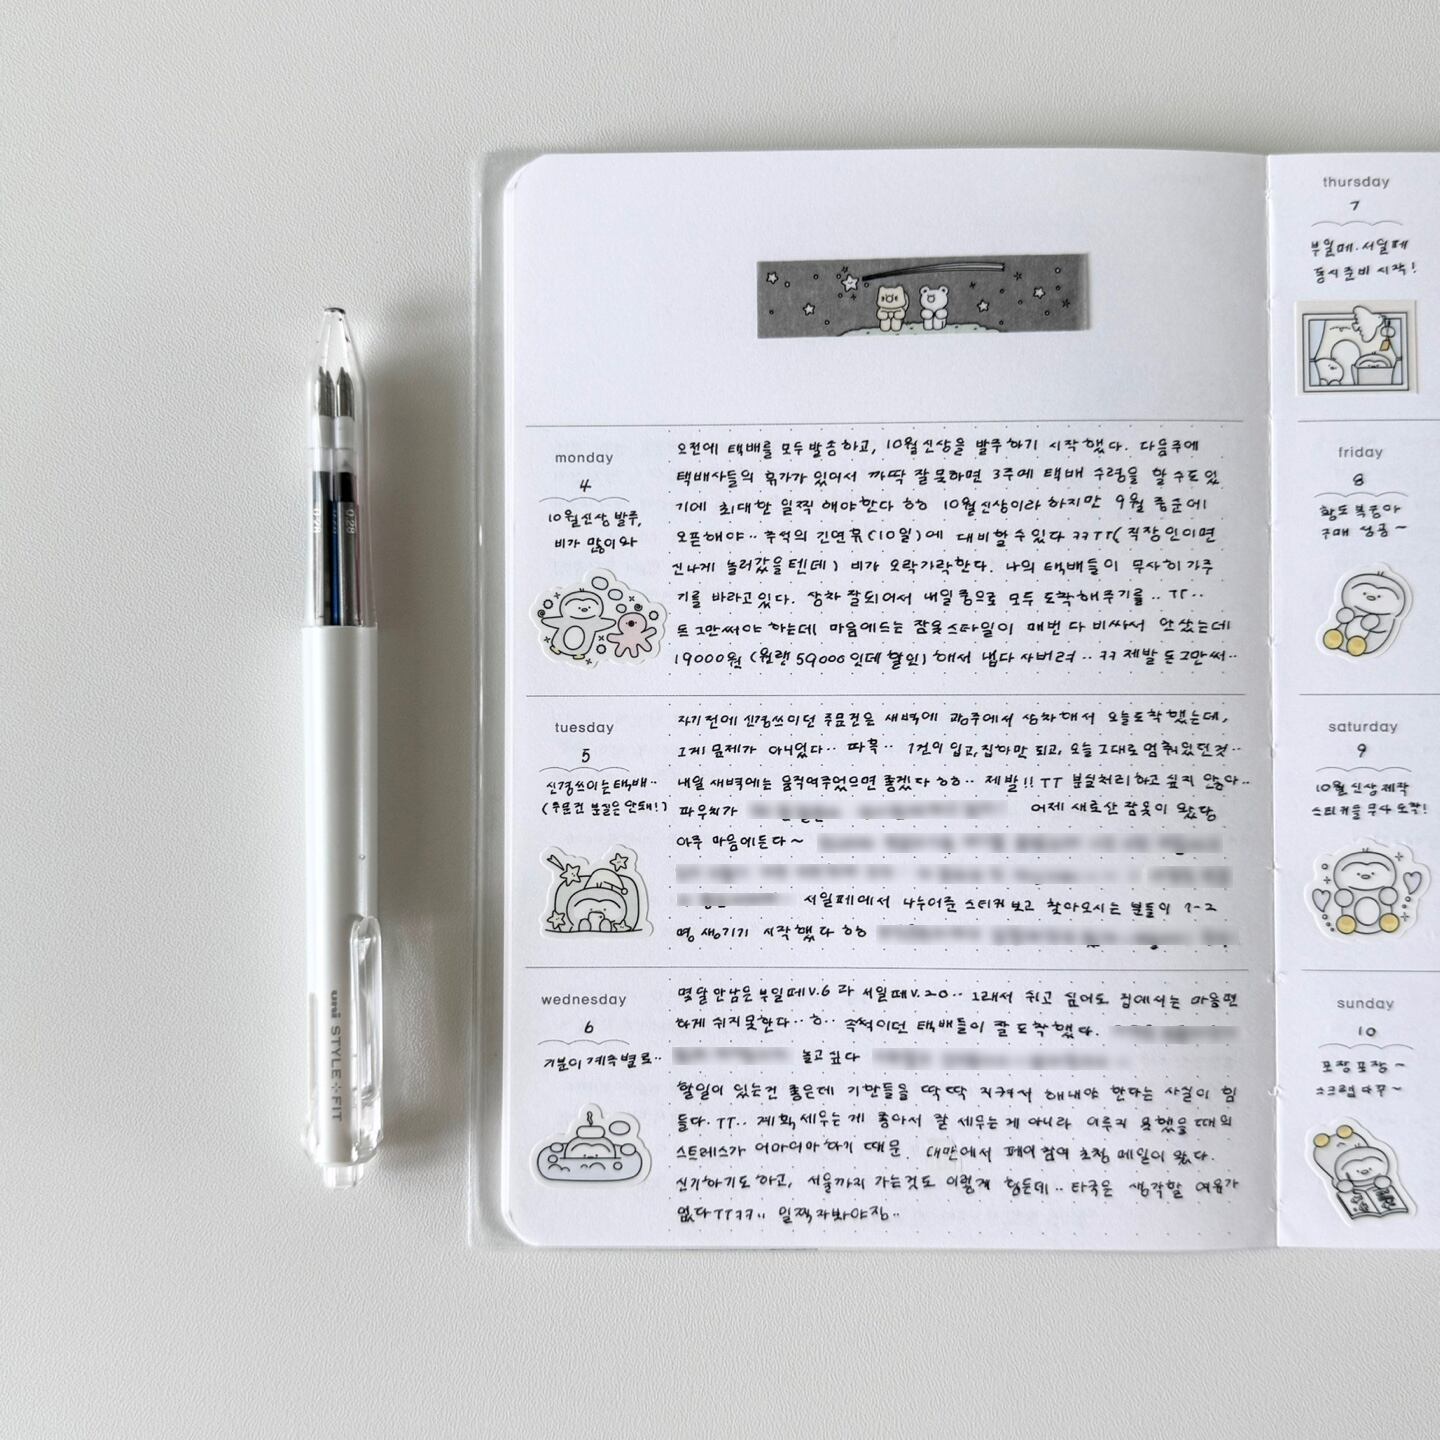 monday
4
10월신상 발주,
비가 많이와
오전에 택배를 모두 발송하고, 10월신상을 발주하기 시작했다. 다음주에
택배사들의 휴가가 있어서 까딱 잘못하면 3주에 택배 수령을 할 수도 있
기에 최대한 일찍 해야한다 ㅎㅎ 10월신상이라 하지만 9월 중순에
오픈해야·· 추석의 긴연휴(10일)에 대비할 수 있다 ㅋㅋㅜㅜ(직장인이면
신나게 놀러갔을텐데) 비가 오락가락한다. 나의 택배들이 무사히 가주
기를 바라고있다. 상차 잘되어서 내일중으로 모두 도착해주기를·· ㅜㅜ··
돈 그만써야 하는데 마음에드는 잠옷스타일이 매번 다 비싸서 안샀는데
19000원 (원랜 59000인데 할인)해서 냅다 사버려·· ㅋㅋ 제발 돈그만써··
tuesday
5
신경쓰이는택배··
(주문건 분실은안돼!)
자기전에 신경쓰이던 주문건은 새벽에 광주에서 상차해서 오늘도착했는데,
그게 문제가 아니었다·· 따흑·· 1건이 입고,집하만 되고, 오늘 그대로 멈춰있던것··
내일 새벽에는 움직여주었으면 좋겠다 ㅎㅎ·· 제발!! ㅜㅜ 분실처리하고 싶지 않아··
파우치가 어제 새로산 잠옷이 왔당
아주 마음에든다~
서일페에서 나누어준 스티커보고 찾아오시는 분들이 1-2
명 생기기 시작했다 ㅎㅎ
wednesday
6
기분이 계속별로··
몇달 안남은 부일페V.6 과 서일페V.20·· 그래서 쉬고 싶어도 집에서는 마음편
하게 쉬지못한다·· ㅎ·· 속썩이던 택배들이 잘 도착했다.
놀고싶다
할일이 있는건 좋은데 기한들을 딱딱 지켜서 해내야 한다는 사실이 힘
들다. ㅜㅜ·· 계획 세우는 게 좋아서 잘 세우는 게 아니라 이루지 못했을 때의
스트레스가 어마어마하기 때문. 대만에서 페어참여 초청 메일이 왔다.
신기하기도 하고, 서울까지 가는것도 이렇게 힘든데·· 타국은 생각할 여유가
없다ㅜㅜㅋㅋ·· 일찍자봐야징··
thursday
7
부일페·서일페
동시준비 시작!
friday
8
황도복숭아
구매 성공~
saturday
9
10월신상제작
스티커들 무사도착!
sunday
10
포장포장~
스크랩다꾸~
uni STYLE FIT
0.28